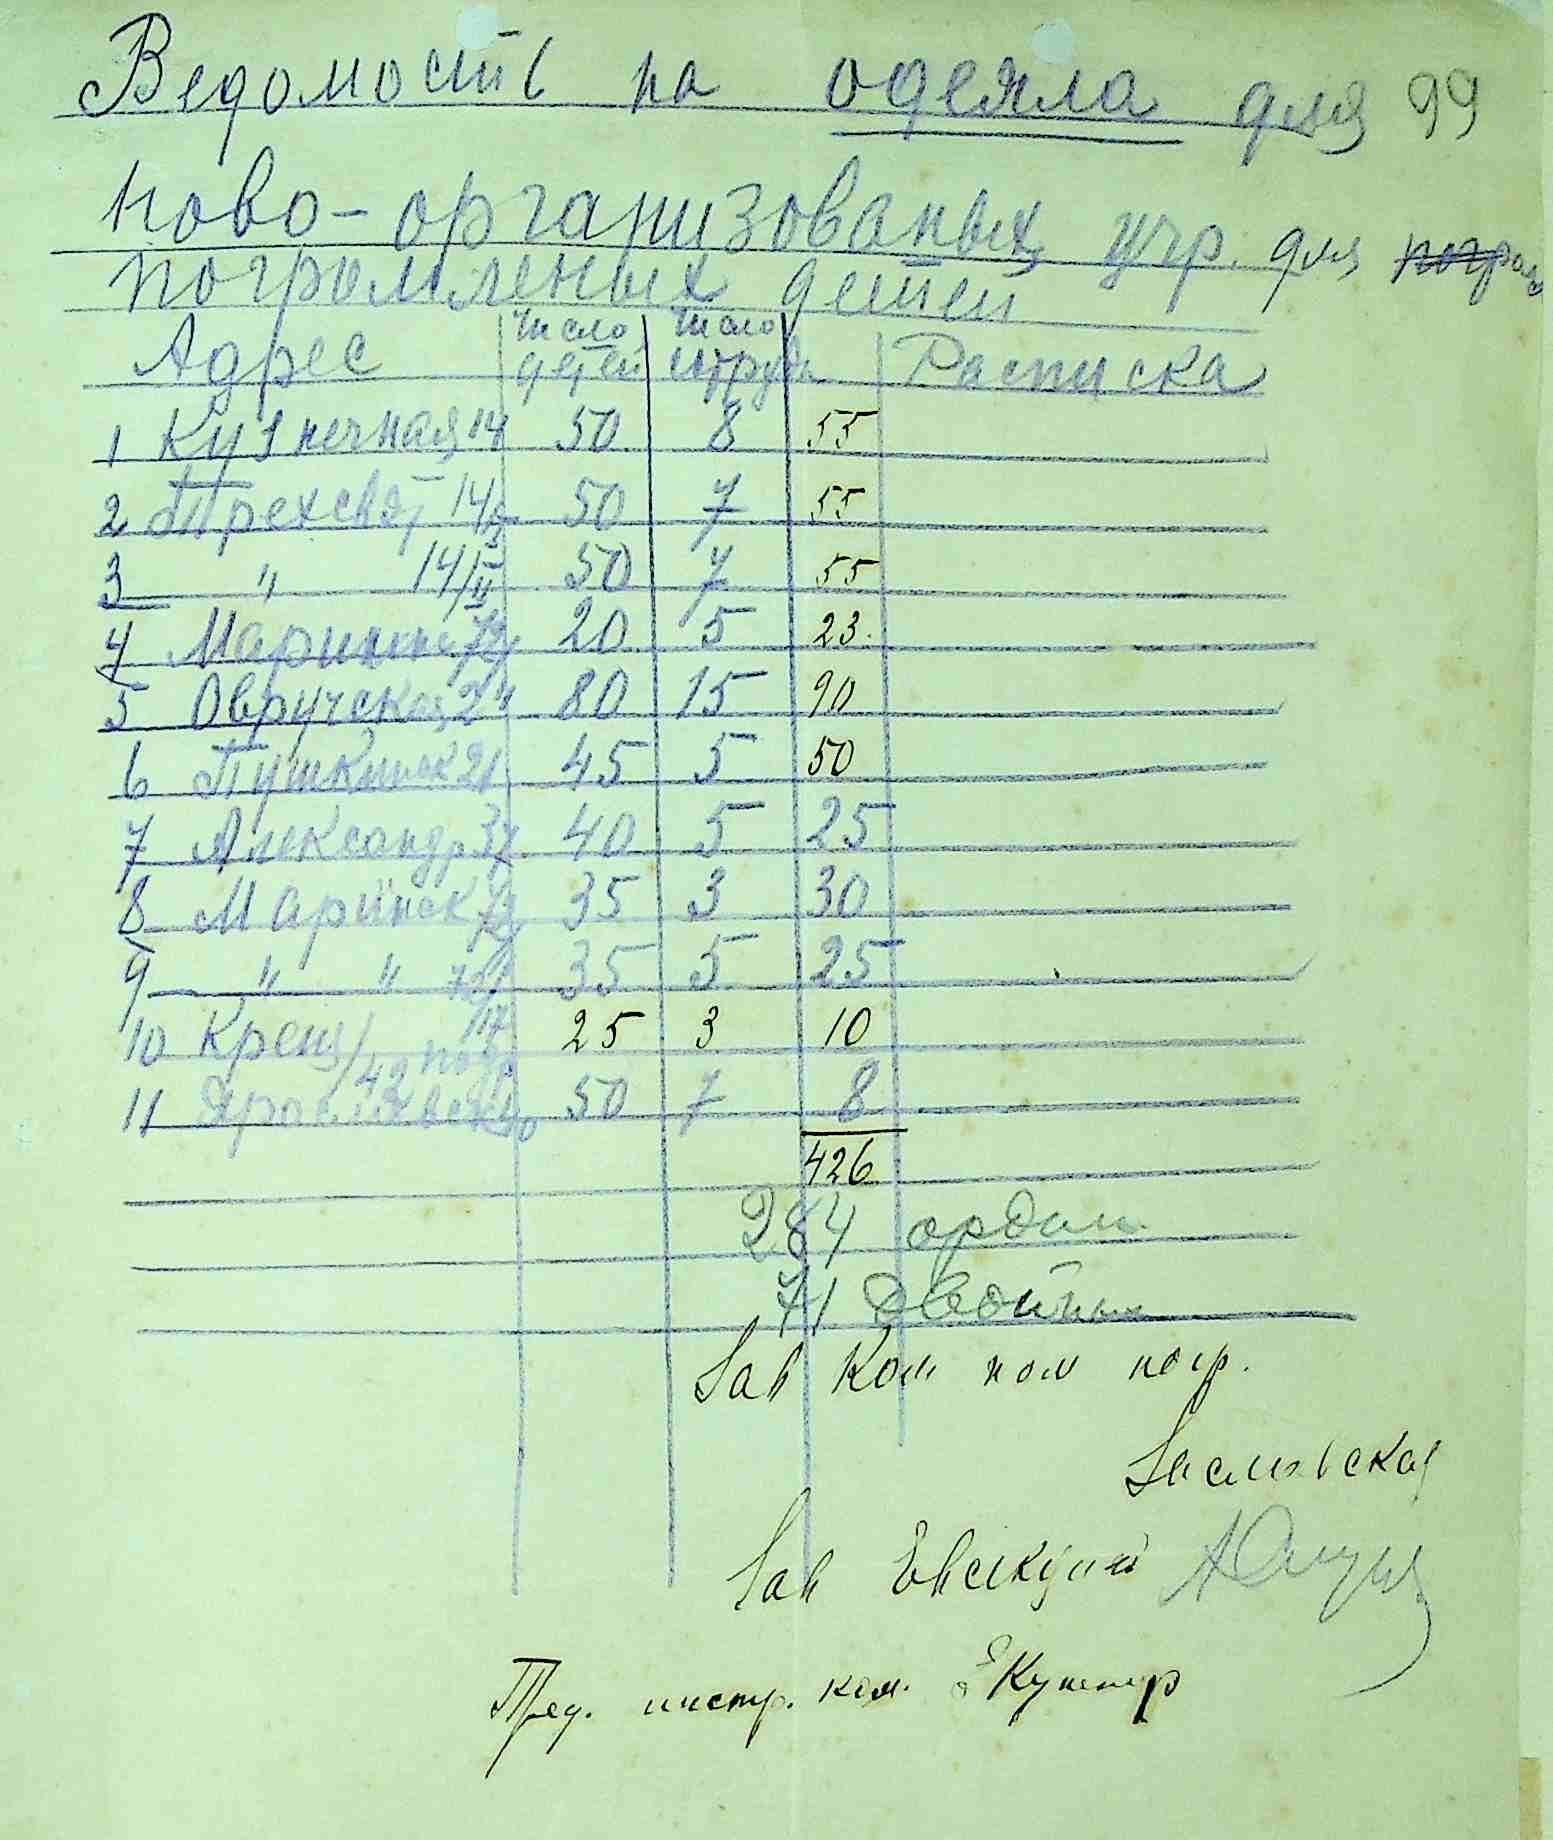 Ведомость на одеяла для 99
ново-организованых учр. для погром
погромленых детей
Адрес Число детей Число сотруд Расписка
1 Кузнечная 14 50 8 55
2 Трехсвят 14/I 50 7 55
3 " 14/II 50 7 55
4 Мариинск 72 20 5 23.
5 Овручская 2 80 15 90
6 Пушкинск 21 45 5 50
7 Александр 37 40 5 25
8 Мариинск 35 3 30
9 " " 35 5 25
10 Крещ/ 25 3 10
11 Ярославская 50 7 8
426
284 ордин
71 двойных
Зав Ком пом погр.
Заславская
Зав Евсекцией
Пред. инстр. ком.